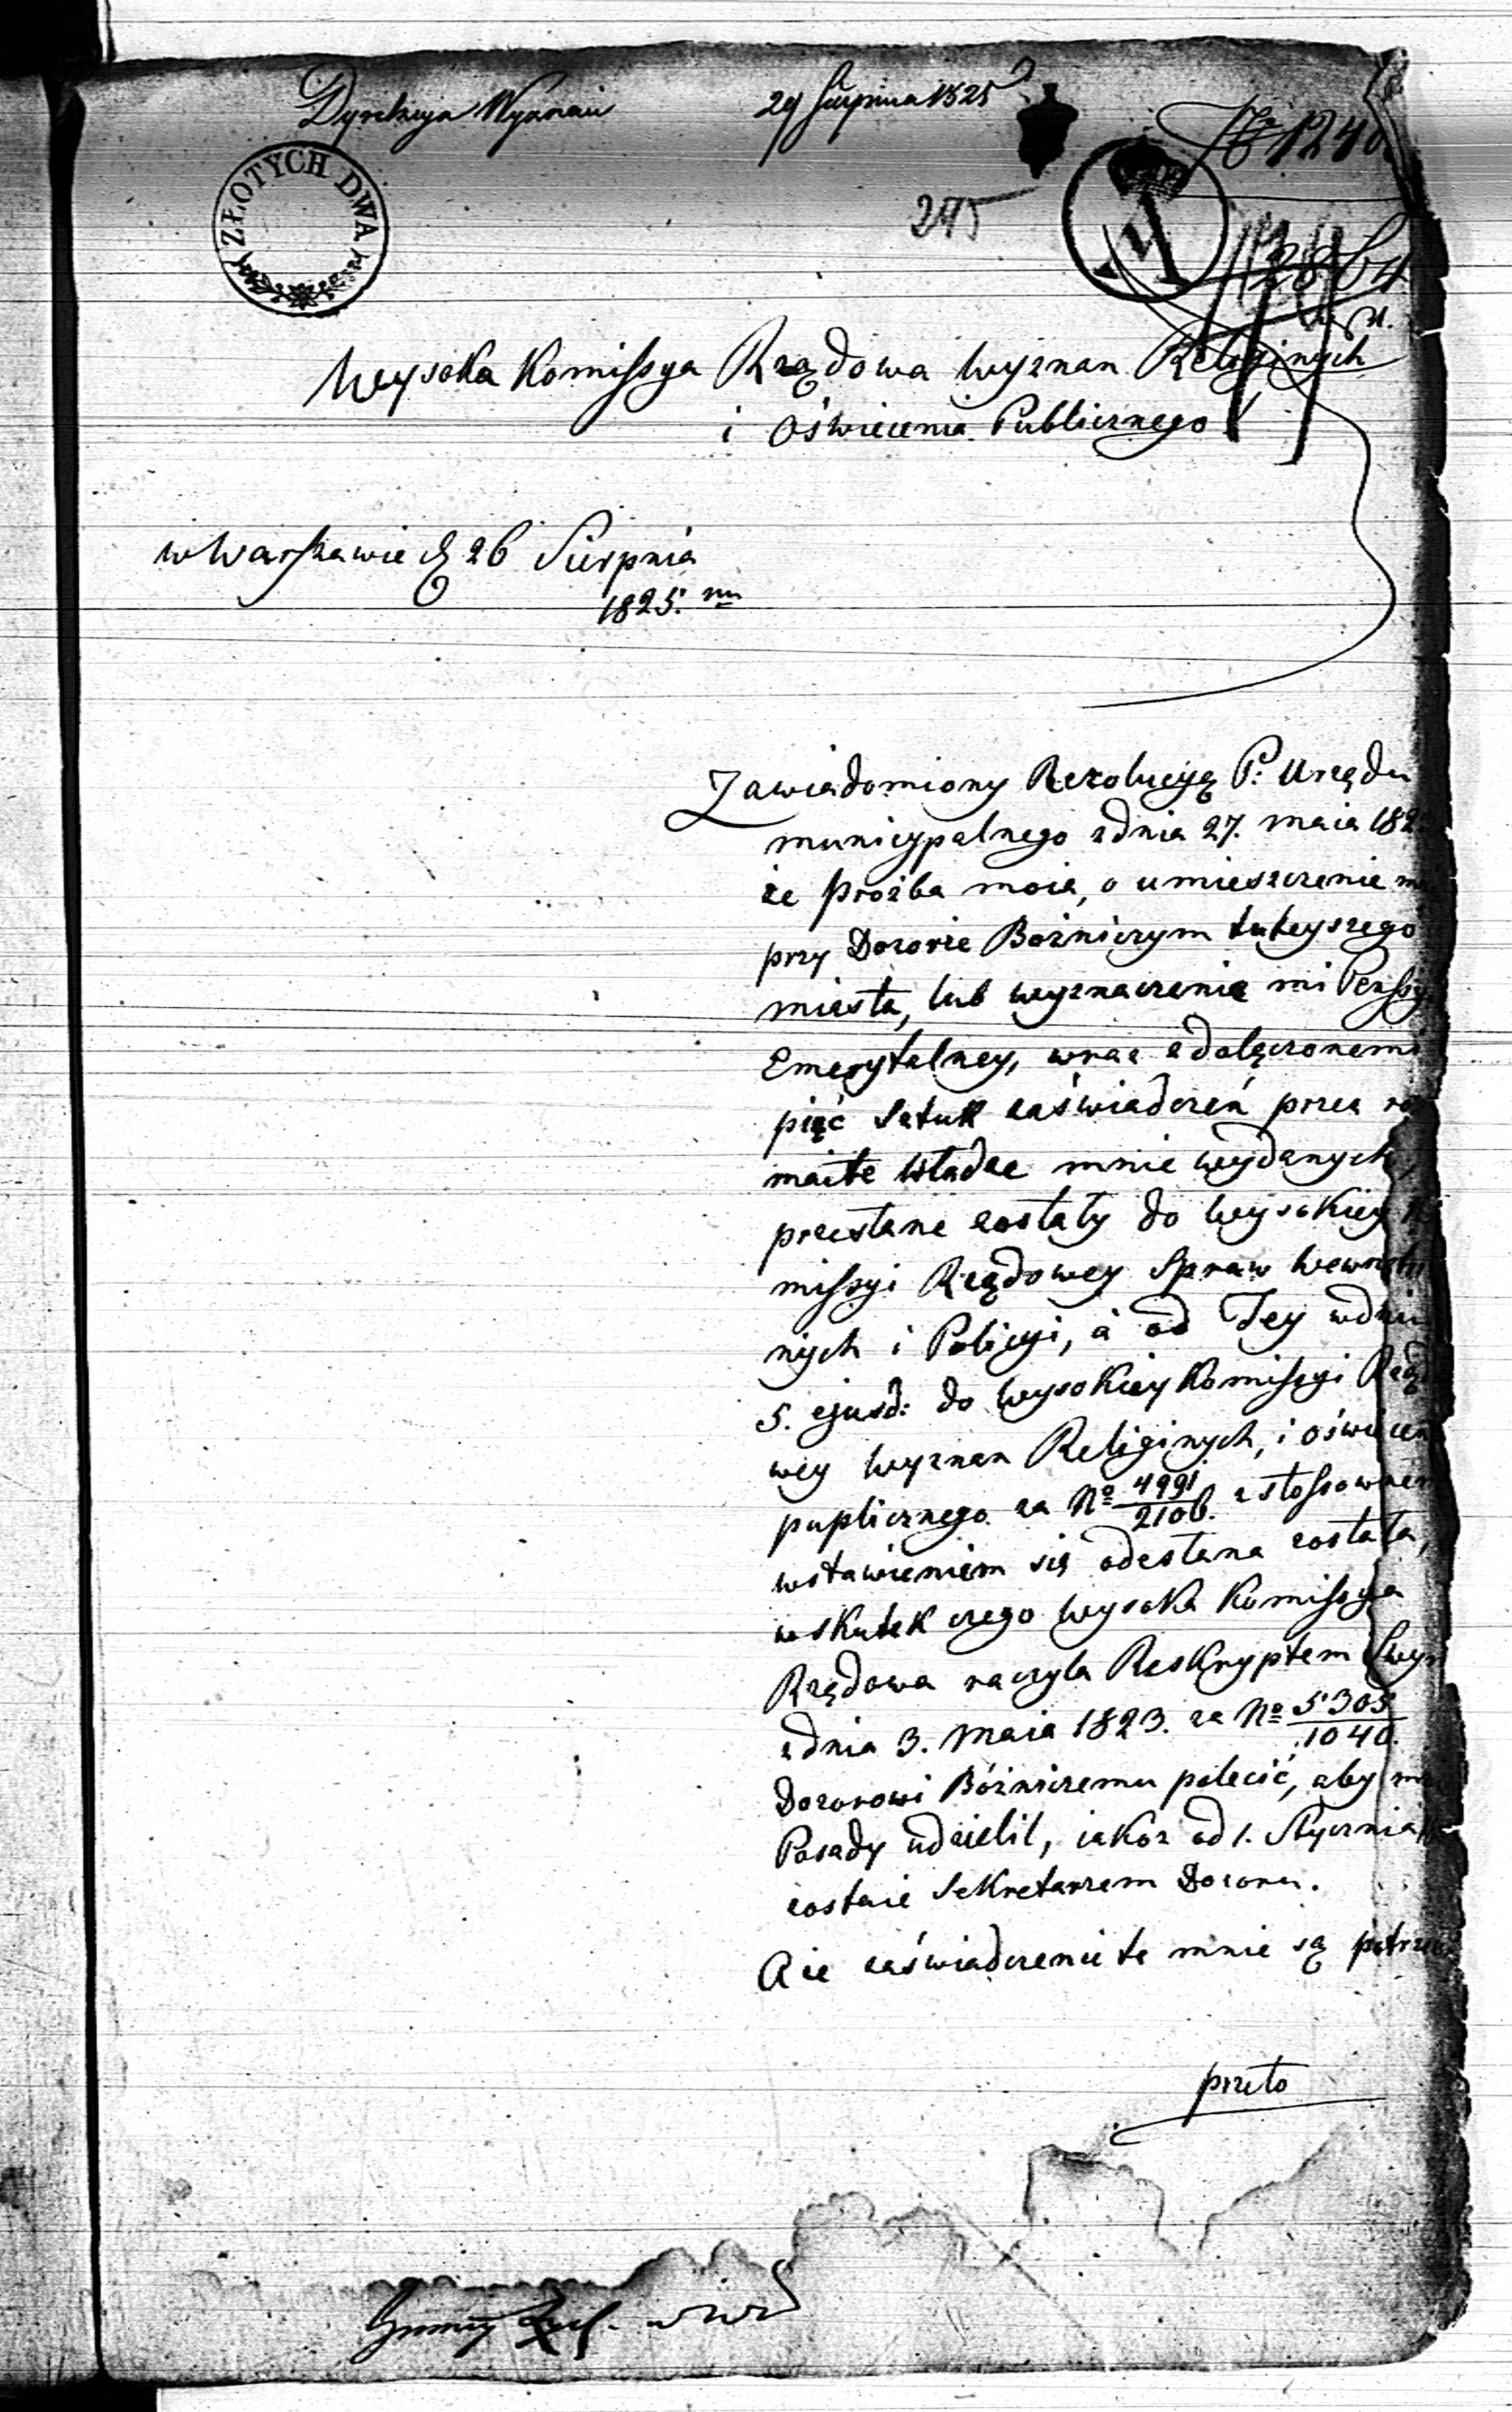 Dyrekcyja Wyznań
29 Sierpnia 1825
ZŁOTYCH DWA
No 1240
245
2864
Wysoka Komissya Rządowa Wyznan Religinych
i Oświecenia Publicznego!
w Warszawie d 26 Sierpnia
1825.
Zawiadomiony Rezolucyą P: Urzędu
municypalnego z dnia 27. maia 182
że proźba moia, o umieszczenie
przy Dozorze Bożniczym tuteyszego
miasta, lub wyznaczenie mi Penssyi
Emerytalney, wraz z dołączonemi
pięć Sztuk zaświadczeń przez ro
maite Władze mnie wydanych,
przesłane zostały do Wysokiey Ko
missyi Rządowey Spraw Wewnętrz
nych i Policyi, a od Tey w dniu
5. ejusd: do Wysokiey Komissyi Rządo
wey Wyznan Religinych, i oświecen
puplicznego za No 4991/2106. z stossownem
wstawieniem się odesłana została,
w skutek czego Wysoka Komissya
Rządowa raczyla Reskryptem Swym
z dnia 3. Maia 1823. za No 5305/1040.
Dozorowi Bóżniczemu polecić, aby
Posady udzielil, iakoż od 1. Stycznia
zostaie Sekretarzem Dozoru.
A że zaświadczenie te mnie są potrze
przeto